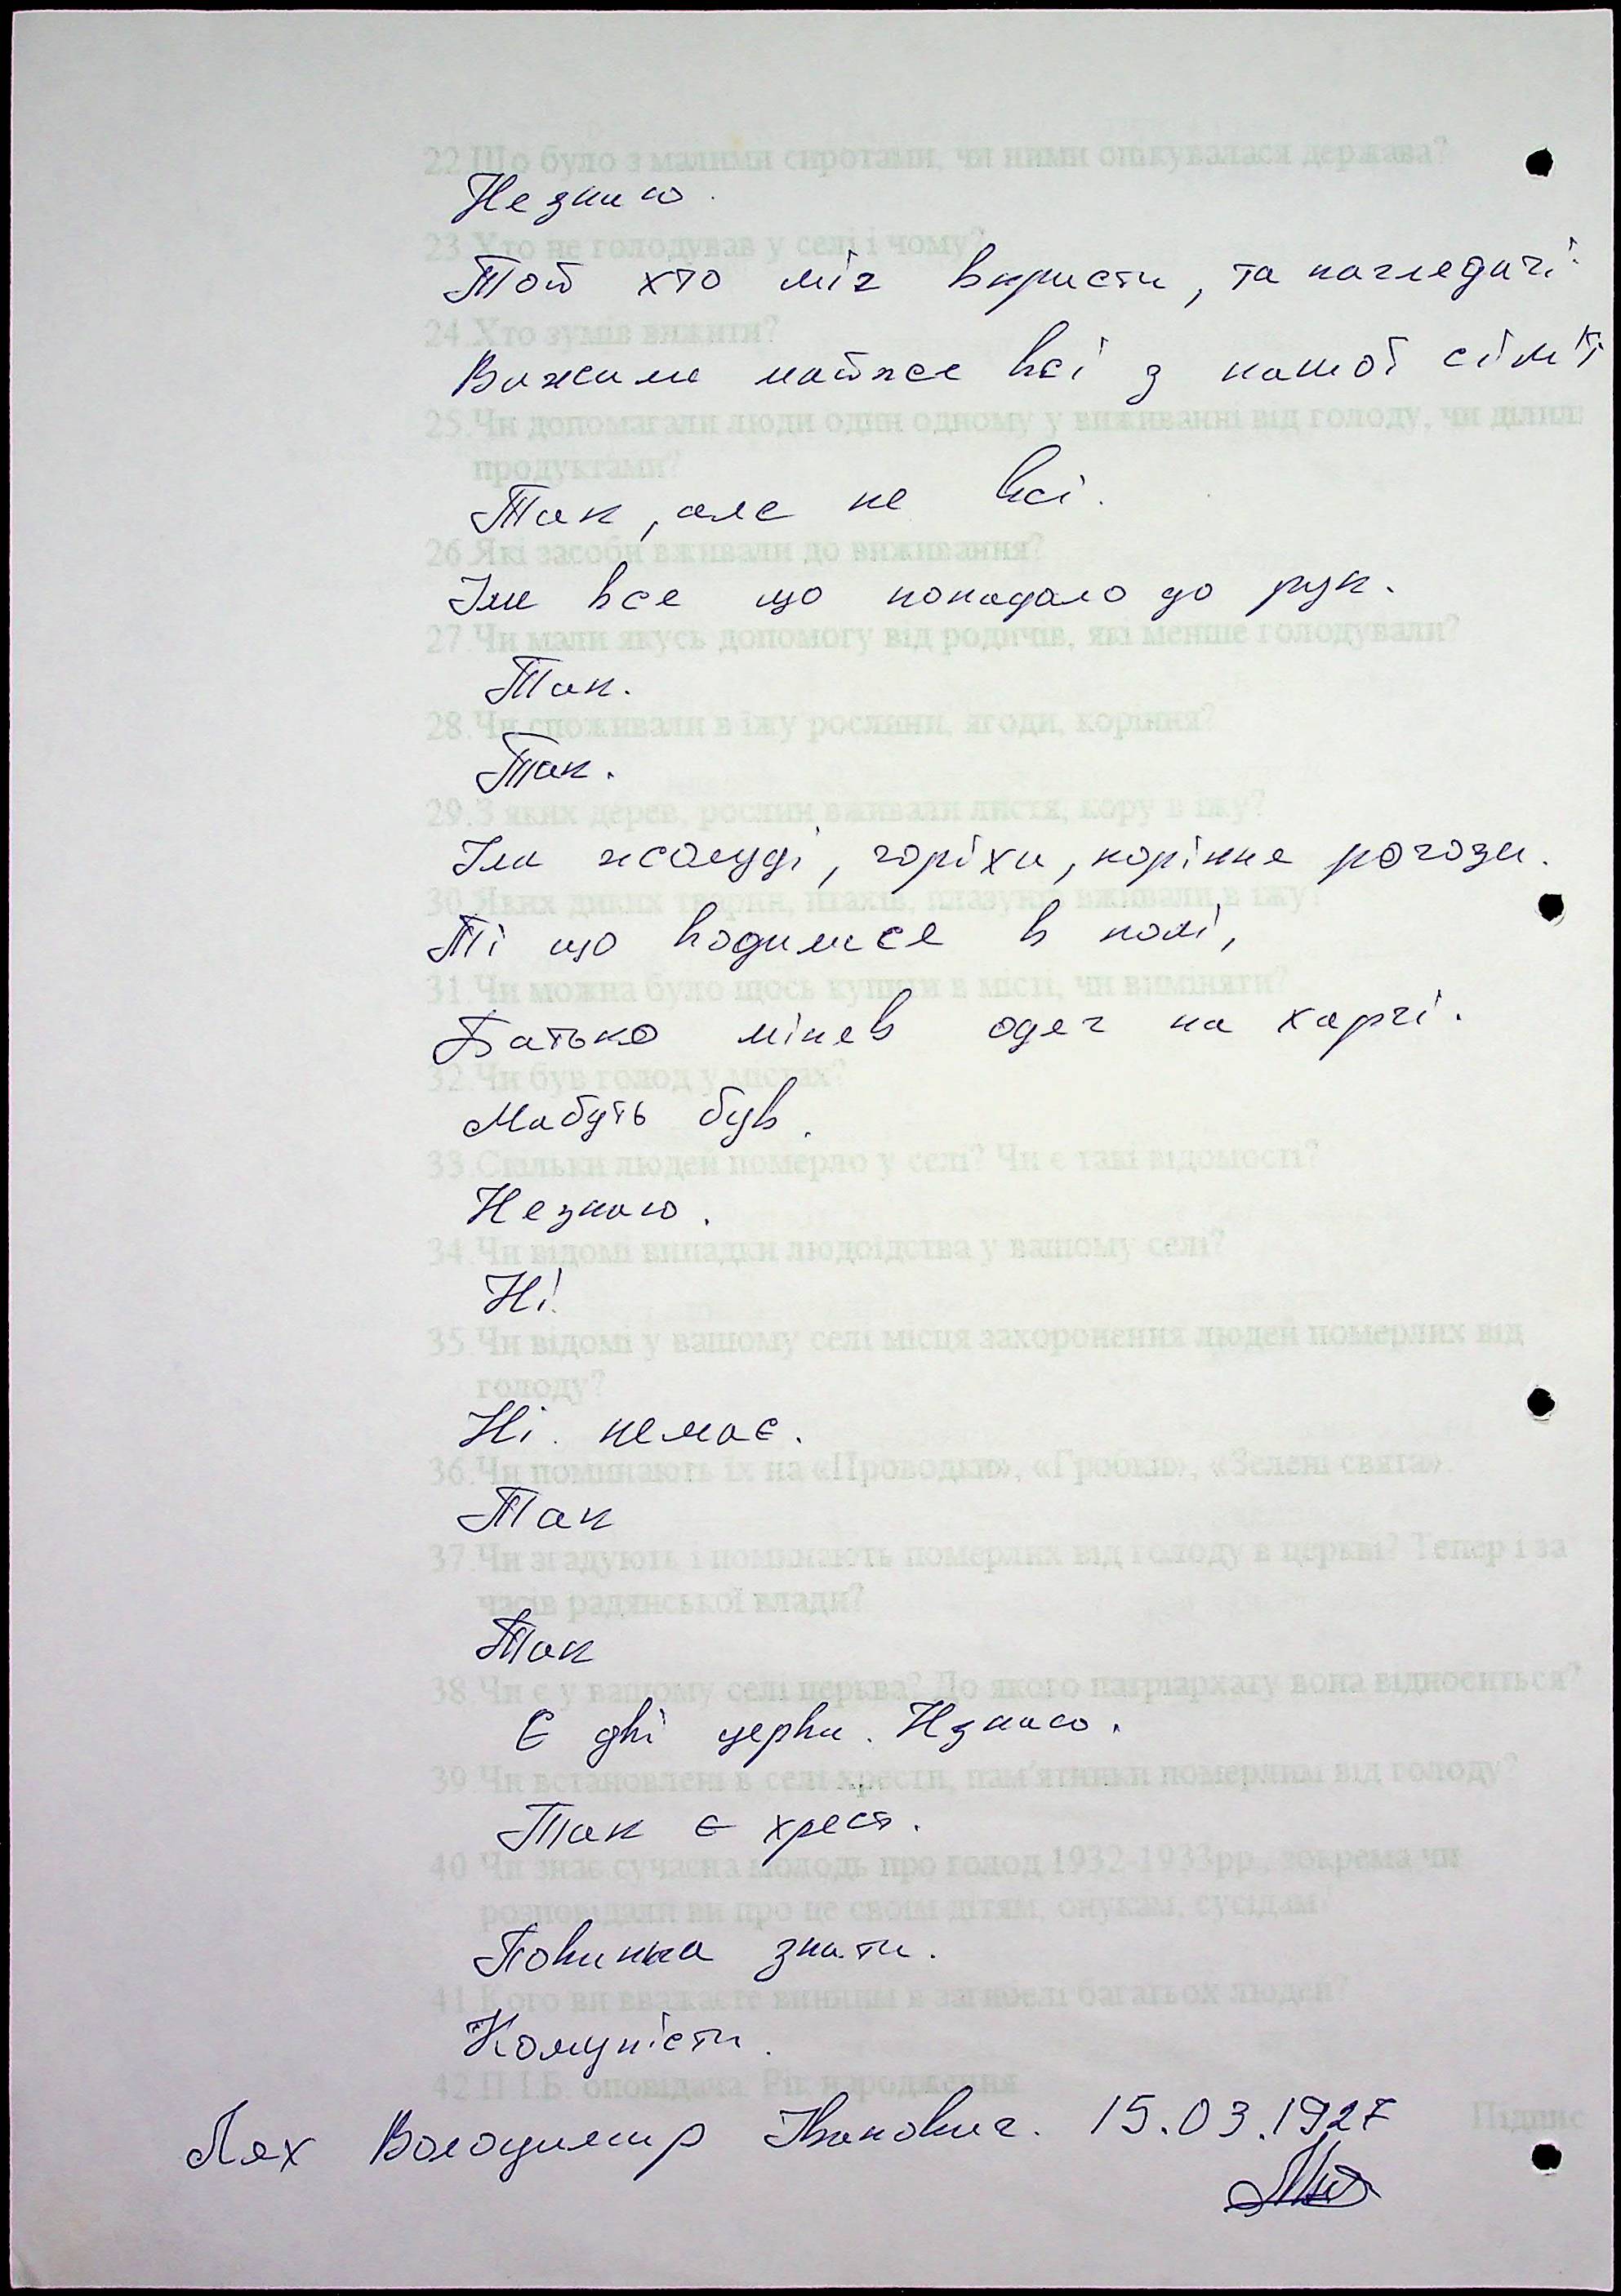 22.Що було з малими сиротами, чи ними опікувалася держава?
Незнаю.
23.Хто не голодував у селі і чому?
Той хто міг вкрасти, та наглядачі.
24.Хто зумів вижити?
Вижили майже всі з нашої сім'ї
25.Чи допомагали люди один одному у виживанні від голоду, чи ділил
продуктами?
Так, але не всі.
26.Які засоби вживали до виживання?
Їли все що попадало до рук.
27.Чи мали якусь допомогу від родичів, які менше голодували?
Так.
28.Чи споживали в їжу рослини, ягоди, коріння?
Так.
29.З яких дерев, рослин вживали листя, кору в їжу?
Їли жолуді, горіхи, коріння рогози.
30.Яких диких тварин, птахів, плазунів вживали в їжу?
Ті що водилися в полі,
31.Чи можна було щось купити в місті, чи виміняти?
Батько міняв одяг на харчі.
32.Чи був голод у містах?
Мабуть був.
33.Скільки людей померло у селі? Чи є такі відомості?
Незнаю.
34.Чи відомі випадки людоїдства у вашому селі?
Ні.
35.Чи відомі у вашому селі місця захоронення людей померлих від
голоду?
Ні. немає.
36.Чи поминають їх на «Проводки», «Гробки», «Зелені свята».
Так
37.Чи згадують і поминають померлих від голоду в церкві? Тепер і за
часів радянської влади?
Так
38.Чи є у вашому селі церква? До якого патріархату вона відноситься?
Є дві церкви. Незнаю.
39.Чи встановлені в селі хрести, пам'ятники померлим від голоду?
Так є хрест.
40.Чи знає сучасна молодь про голод 1932-1933рр., зокрема чи
розповідали ви про це своїм дітям, онукам, сусідам?
Повинна знати.
41.Кого ви вважаєте винним в загибелі багатьох людей?
Комуністи.
42.П.І.Б. оповідача. Рік народження
Підпис
Лях Володимир Іванович. 15.03.1927